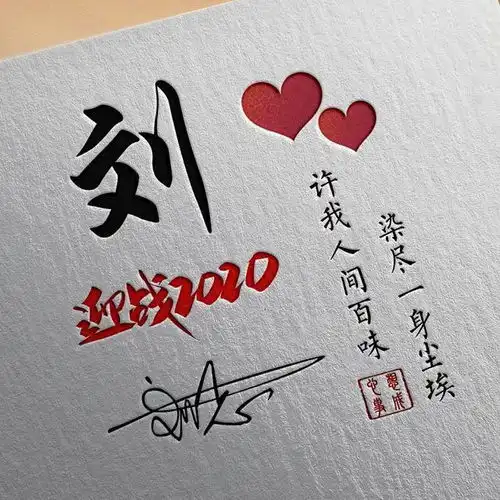 刘
迎战2020
染尽一身尘埃
许我人间百味
心想
事成